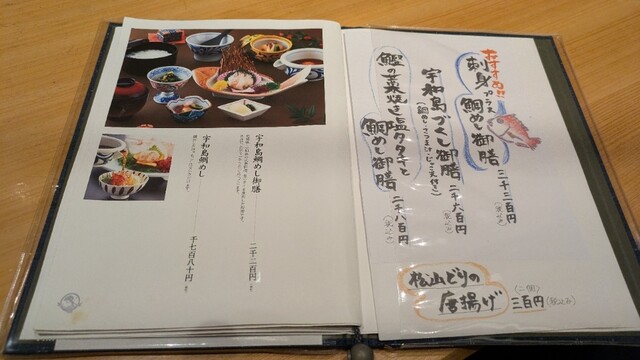 おすすめ!!
刺身プラス
鯛めし御膳
二千三百円
(税込み)
宇和島づくし御膳
二千六百円
(税込み)
鰹の藁焼き塩タタキと
鯛めし御膳
二千八百円
(税込み)
松山どりの
唐揚げ
〈二個〉
三百円
(税込み)
宇和島鯛めし御膳
二千二百円
宇和島鯛めし
千七百八十円